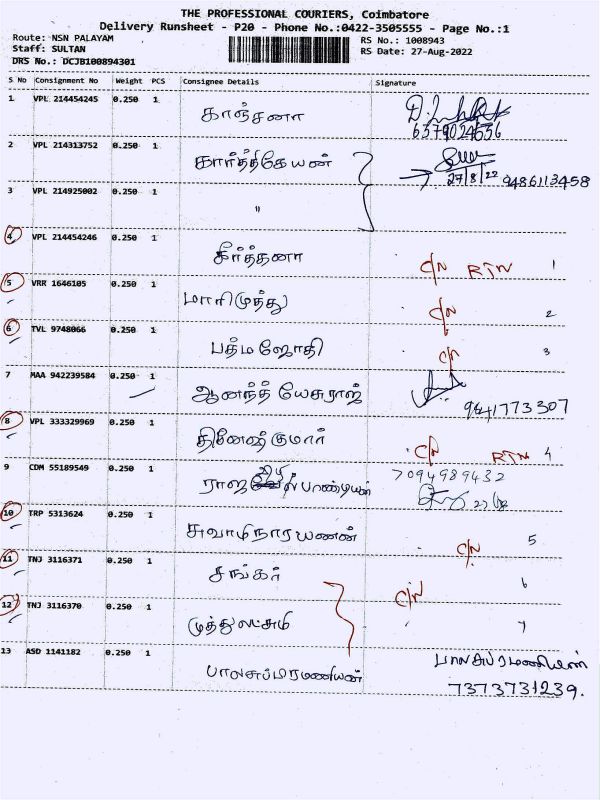 THE PROFESSIONAL COURIERS, Coimbatore
Delivery Runsheet - P20 - Phone No.:0422-3505555 - Page No.:1
Route: NSN PALAYAM
Staff: SULTAN
DRS No.: DCJB100894301
RS No.: 1008943
RS Date: 27-Aug-2022
S No Consignment No Weight PCS Consignee Details Signature
1 VPL 214454245 0.250 1 காஞ்சனா
6379024636
2 VPL 214313752 0.250 1 கார்த்திகேயன்
27/8/22 9486113458
3 VPL 214925002 0.250 1 "
4 VPL 214454246 0.250 1 கீர்த்தனா C/N RTN 1
5 VRR 1646105 0.250 1 மாரிமுத்து C/N 2
6 TVL 9748066 0.250 1 பத்மஜோதி C/N 3
7 MAA 942239584 0.250 1 ஆனந்த் யேசுராஜ் 9841773307
8 VPL 333329969 0.250 1 தினேஷ்குமார் C/N RTN 4
9 CDM 55189549 0.250 1 7094989432
10 TRP 5313624 0.250 1 சுவாமிநாரயணன் C/N 5
11 TNJ 3116371 0.250 1 சங்கர் C/N 6
12 TNJ 3116370 0.250 1 முத்துலட்சுமி 7
13 ASD 1141182 0.250 1 பாலசுப்மரமணியன் பாலசுப்ரமணியன்
7373731239.